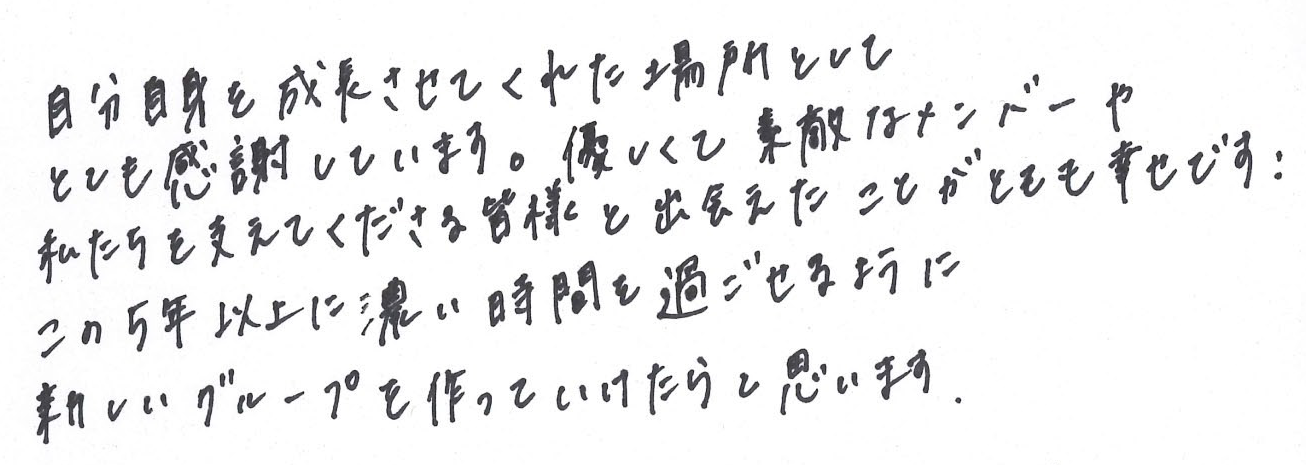 自分自身を成長させてくれた場所として
とても感謝しています。優しくて素敵なメンバーや
私たちを支えてくださる皆様と出会えたことがとても幸せです:
この5年以上に濃い時間を過ごせるように
新しいグループを作っていけたらと思います.